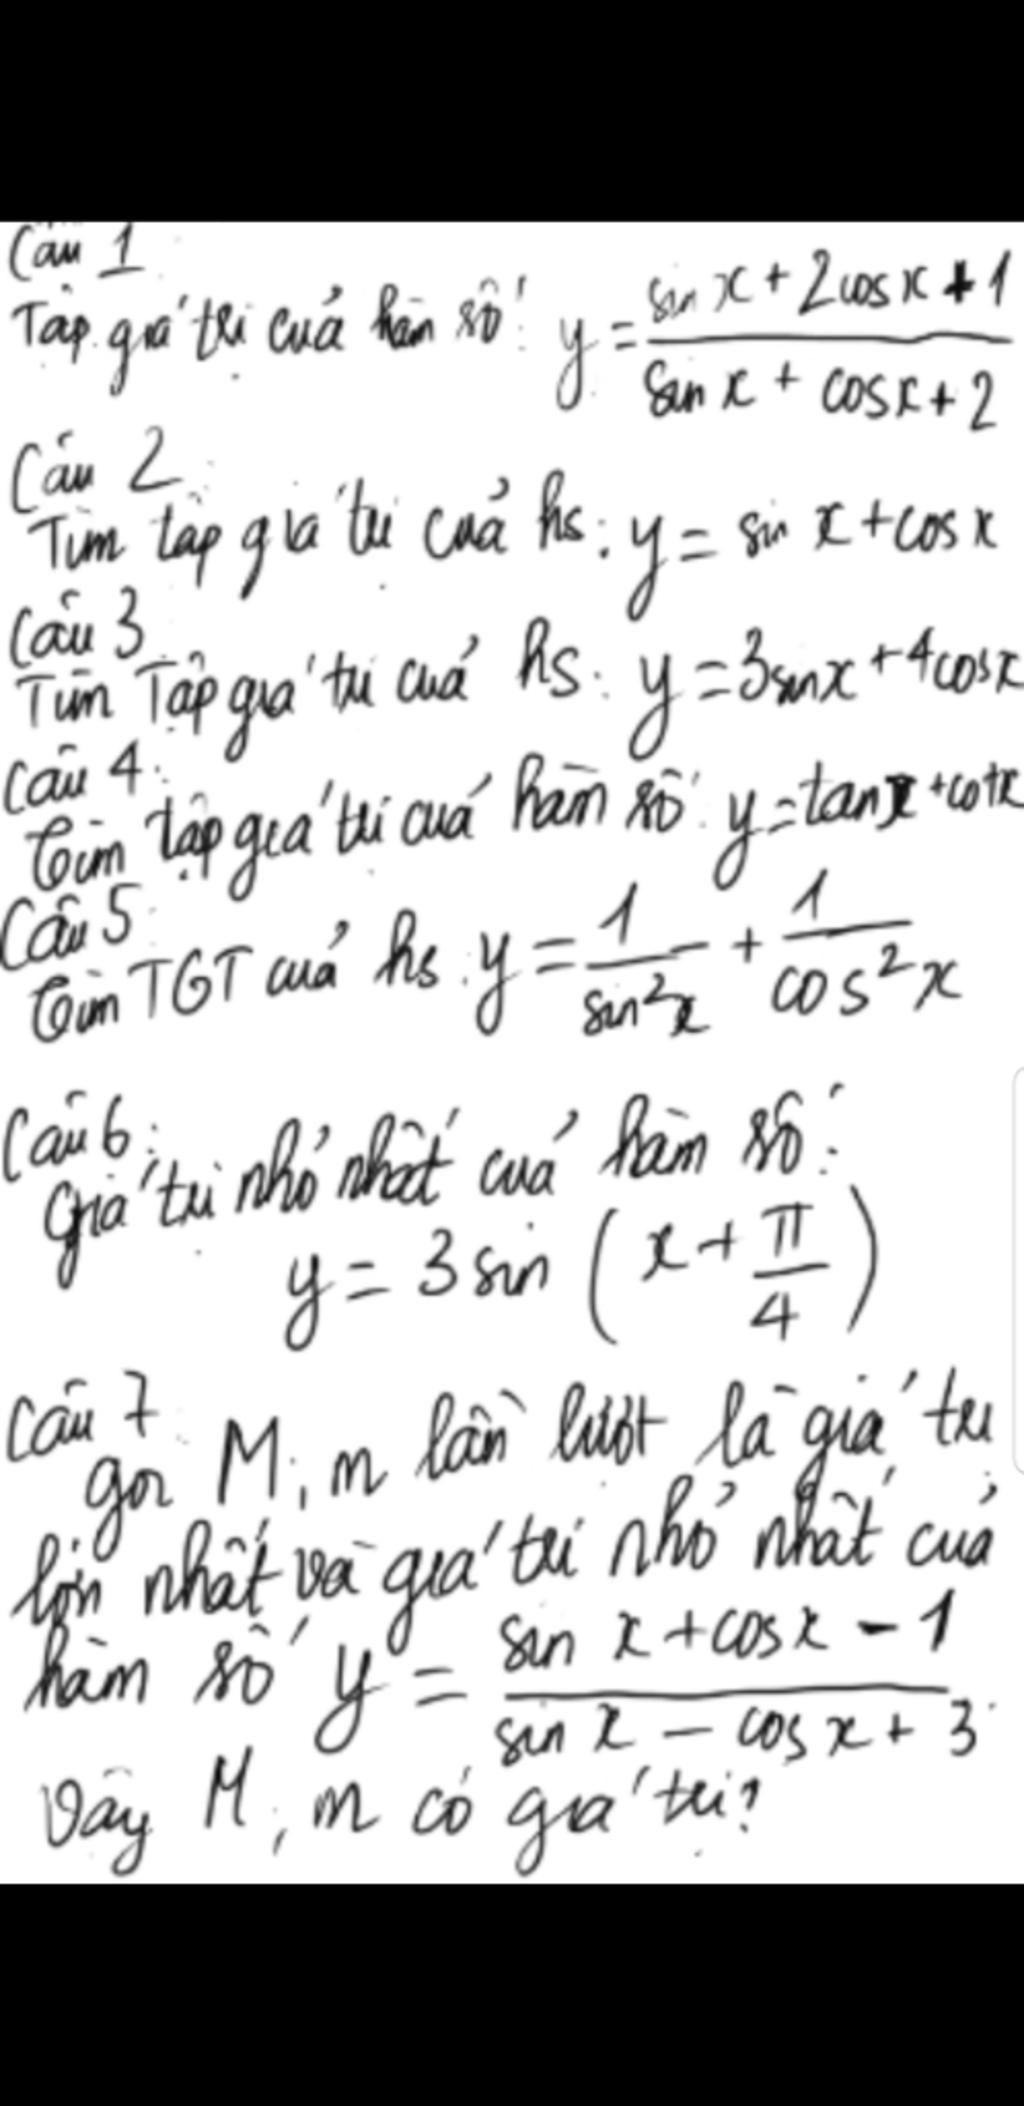 Câu 1
Tập giá trị của hàm số: y = (sin x + 2cos x + 1)/(sin x + cos x + 2)
Câu 2
Tìm tập giá trị của hs: y = sin x + cos x
Câu 3
Tìm Tập giá trị của hs: y = 3sin x + 4cos x
Câu 4:
Tìm tập giá trị của hàm số: y = tan x + cot x
Câu 5:
Tìm TGT của hs: y = 1/sin²x + 1/cos²x
Câu 6:
Giá trị nhỏ nhất của hàm số:
y = 3 sin (x + π/4)
Câu 7:
gọi M, m lần lượt là giá trị
lớn nhất và giá trị nhỏ nhất của
hàm số y = (sin x + cos x - 1)/(sin x - cos x + 3)
Vậy M, m có giá trị?